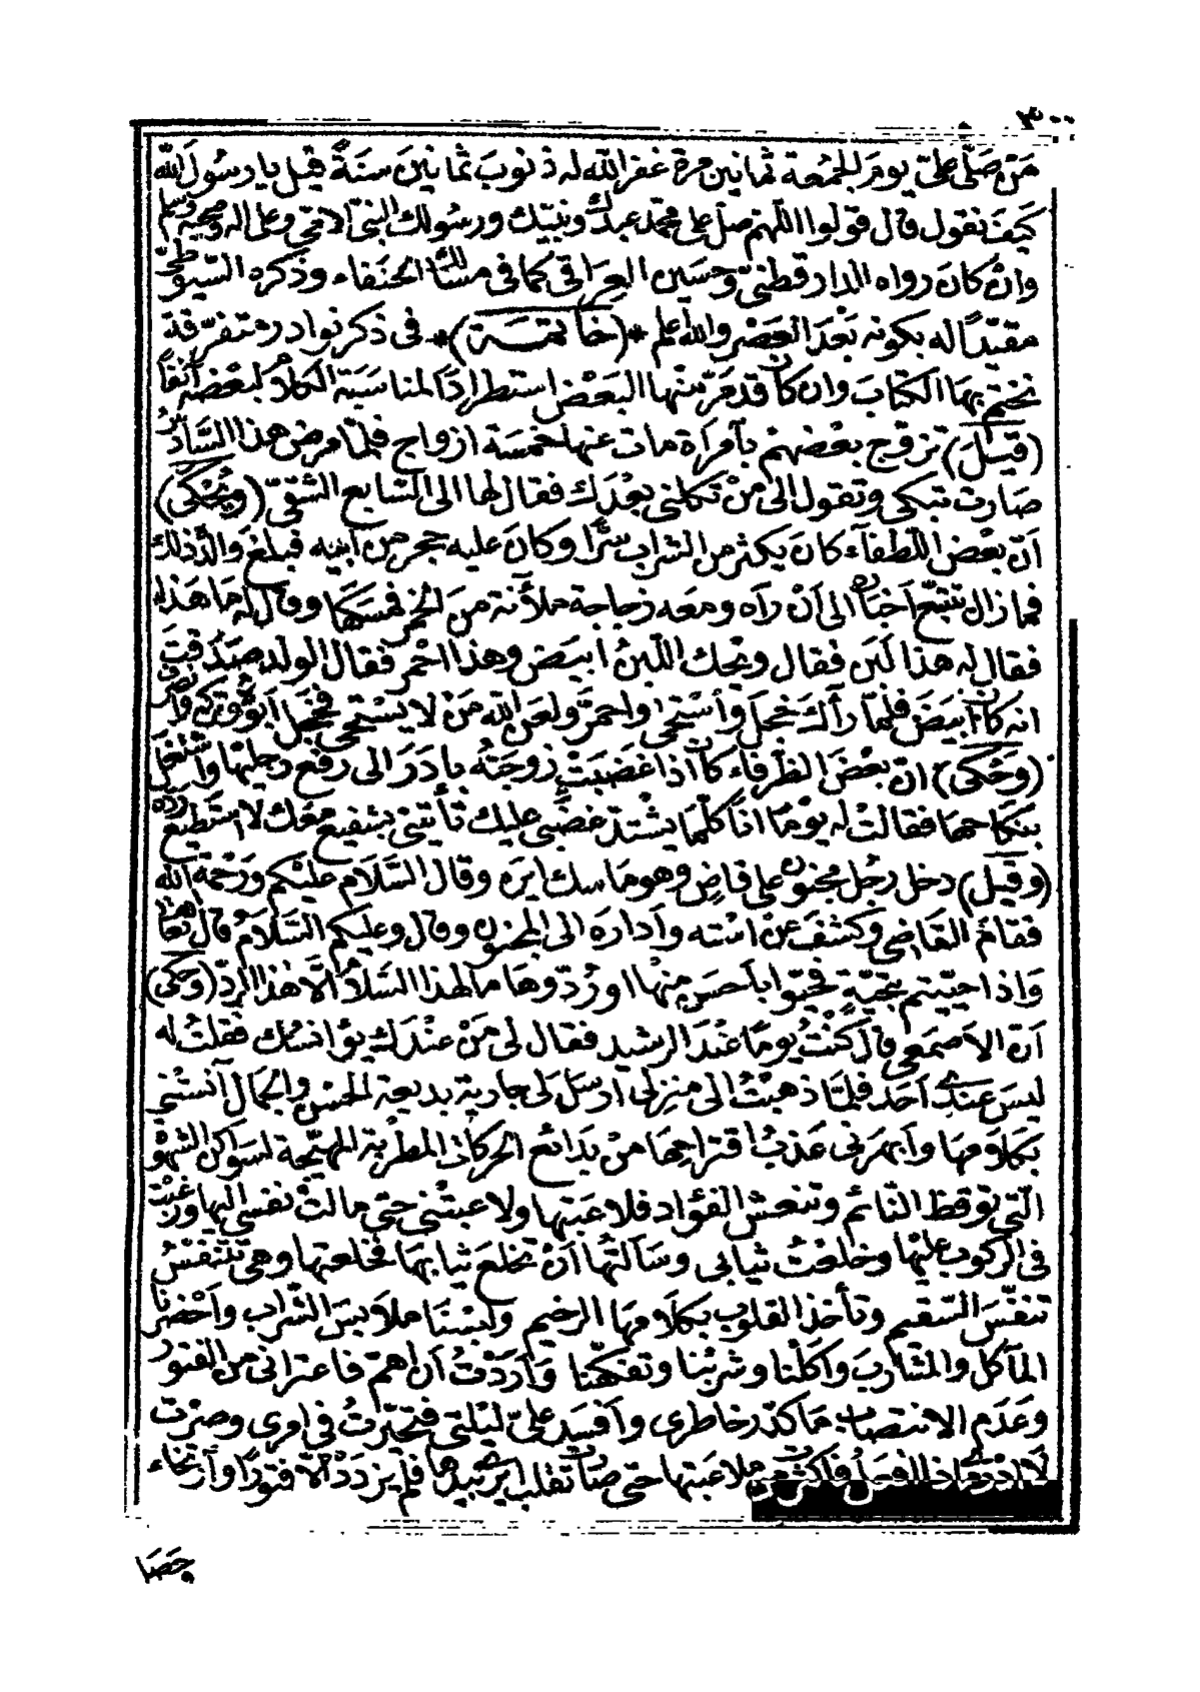 ٣٠٠
مَن صَلّى علىّ يومَ الجمُعة ثمانين مرة غفر الله له ذنوبَ ثمانينَ سنَةً قيل يا رسُولَ الله
كيفَ نقول قال قولوا اللهم صل على محمد عبدك ونبيك ورسولك النبىّ الامّى وعلى اله وصحبه وسلم
وانْ كانَ رواه الدارقطنىّ وحسَين العِراقى كما فى مسالك الحنَفاء وذكره السّيوطىّ
مقيّدًا له بكونه بعْدَ العَصْر والله اعلم *(خاتمـة)* فى ذكر نوادر متفرّقة
نختم بهَا الكتابَ وان كان قد مَرّ منْها البَعْض استطرادًا لمناسَبَة الكلام لبعْضه آنفًا
(قيلَ) تزوّج بعْضهمْ بآمرَأة مات عنها خمسَة ازواج فلمّا مرض هذا السَّادسُ
صَارت تبكى وتقول الى مَنْ تكلنى بعْدَك فقال لها الى السّابع الشّقىّ (ويُحْكى)
اَنّ بعْض اللّطفآء كانَ يكثر من الشراب سرًّا وكانَ عليه حجر من ابيه فبلغ والدَه ذلك
فما زال يتتبّع اخباره الى اَنْ رآه ومعَه زجاجة ملأنة من الخمر فمسَكهَا وقال له مَا هَذا
فقال له هذا لبَن فقال ويحك اللّبنُ ابيَض وهذا احْمر فقال الولد صَدَقتَ
انه كان ابيَضَ فلمّا رآك خجل وآسْتحى واحمرَّ ولعَن الله مَنْ لا يَسْتحى فخجل ابوه وتركه وانصرف
(وحُكى) انّ بعْضَ الظرفاء كان اذا غضبَتْ زوجَتُه بادَرَ الى رفع رجليْها وآشتغل
بنكاحهَا فقالتْ له يوْمًا انا كلّما يشتد غضبى عليك تأتينى بشفيع معَك لا استطيعُ ردّه
(وقيلَ) دخل رجُل مجنون على قاضٍ وهو ماسك ايرَه وقال السَّلام عليْكم ورَحْمة الله
فقامَ القاضى وكشفَ عن اسْته وآدارَه الى المجنون وقال وعليكم السَّلامُ قال تعالى
وَاذا حيّيتم بتحيّةٍ فحيّوا بأحسَن منْها اورُدّوهَا ما لهذا السَّلام الّا هَذا الردّ (وحكى)
اَنّ الاَصمَعى قال كنْتُ يومًا عنْدَ الرشيد فقال لى مَنْ عنْدَك يؤانسُك فقلتُ له
ليسَ عندى آحَد فلمّا ذهبْتُ الى منزلى ارسَلَ لى جارية بديعة الحسْن والجمَال آنسَتْنى
بكلامهَا وآبهرَنى عَذبُ اقتراحهَا منْ بدَائع الحركات المطربَة المهيّجة لسَواكن الشهْوة
الّتى توقظ النّائم وتنعش الفؤاد فلاعَبْتها ولاعبتْنى حتى مالتْ نفسى اليها ورغبْت
فى الركوب عليْها وخلعْتُ ثيابى وسَآلتُها آنْ تخلعَ ثيابهَا فخلعتها وهى تتنفّسُ
تنفّسَ السّقيم وتأخذ القلوب بكلامهَا الرخيم ولبسْنَا ملابسَ الشّراب وآحْضرنا
المآكل والمشاربَ وآكلْنا وشربْنا وتفكّهْنا وآرَدْتُ اَن اهمّ فاعترانى من الفتورُ
وعَدَم الانتصاب مَا كدّر خاطرى وآفسَد علىّ ليْلتى فتحيّرتُ فى امرى وصرْت
لا ادرى ماذا افعل فاكثرت من ملاعبَتها حتى صارت تقلب ايرى بيدها فلم يزدَدْ الّا فتورًا وآرتخاء
وحَصَا